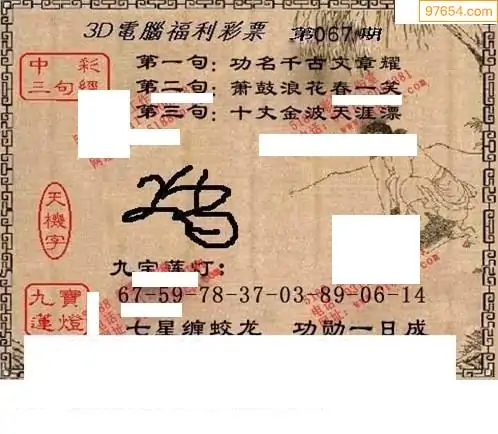 97654.com
3D電腦福利彩票 第067期
中彩
三句經
第一句：功名千古文章耀
第二句：萧鼓浪花春一笑
第三句：十丈金波天涯漂
天機字
九宝莲灯：
九寶
蓮燈
67-59-78-37-03-89-06-14
七星缠蛟龙 功勋一日成